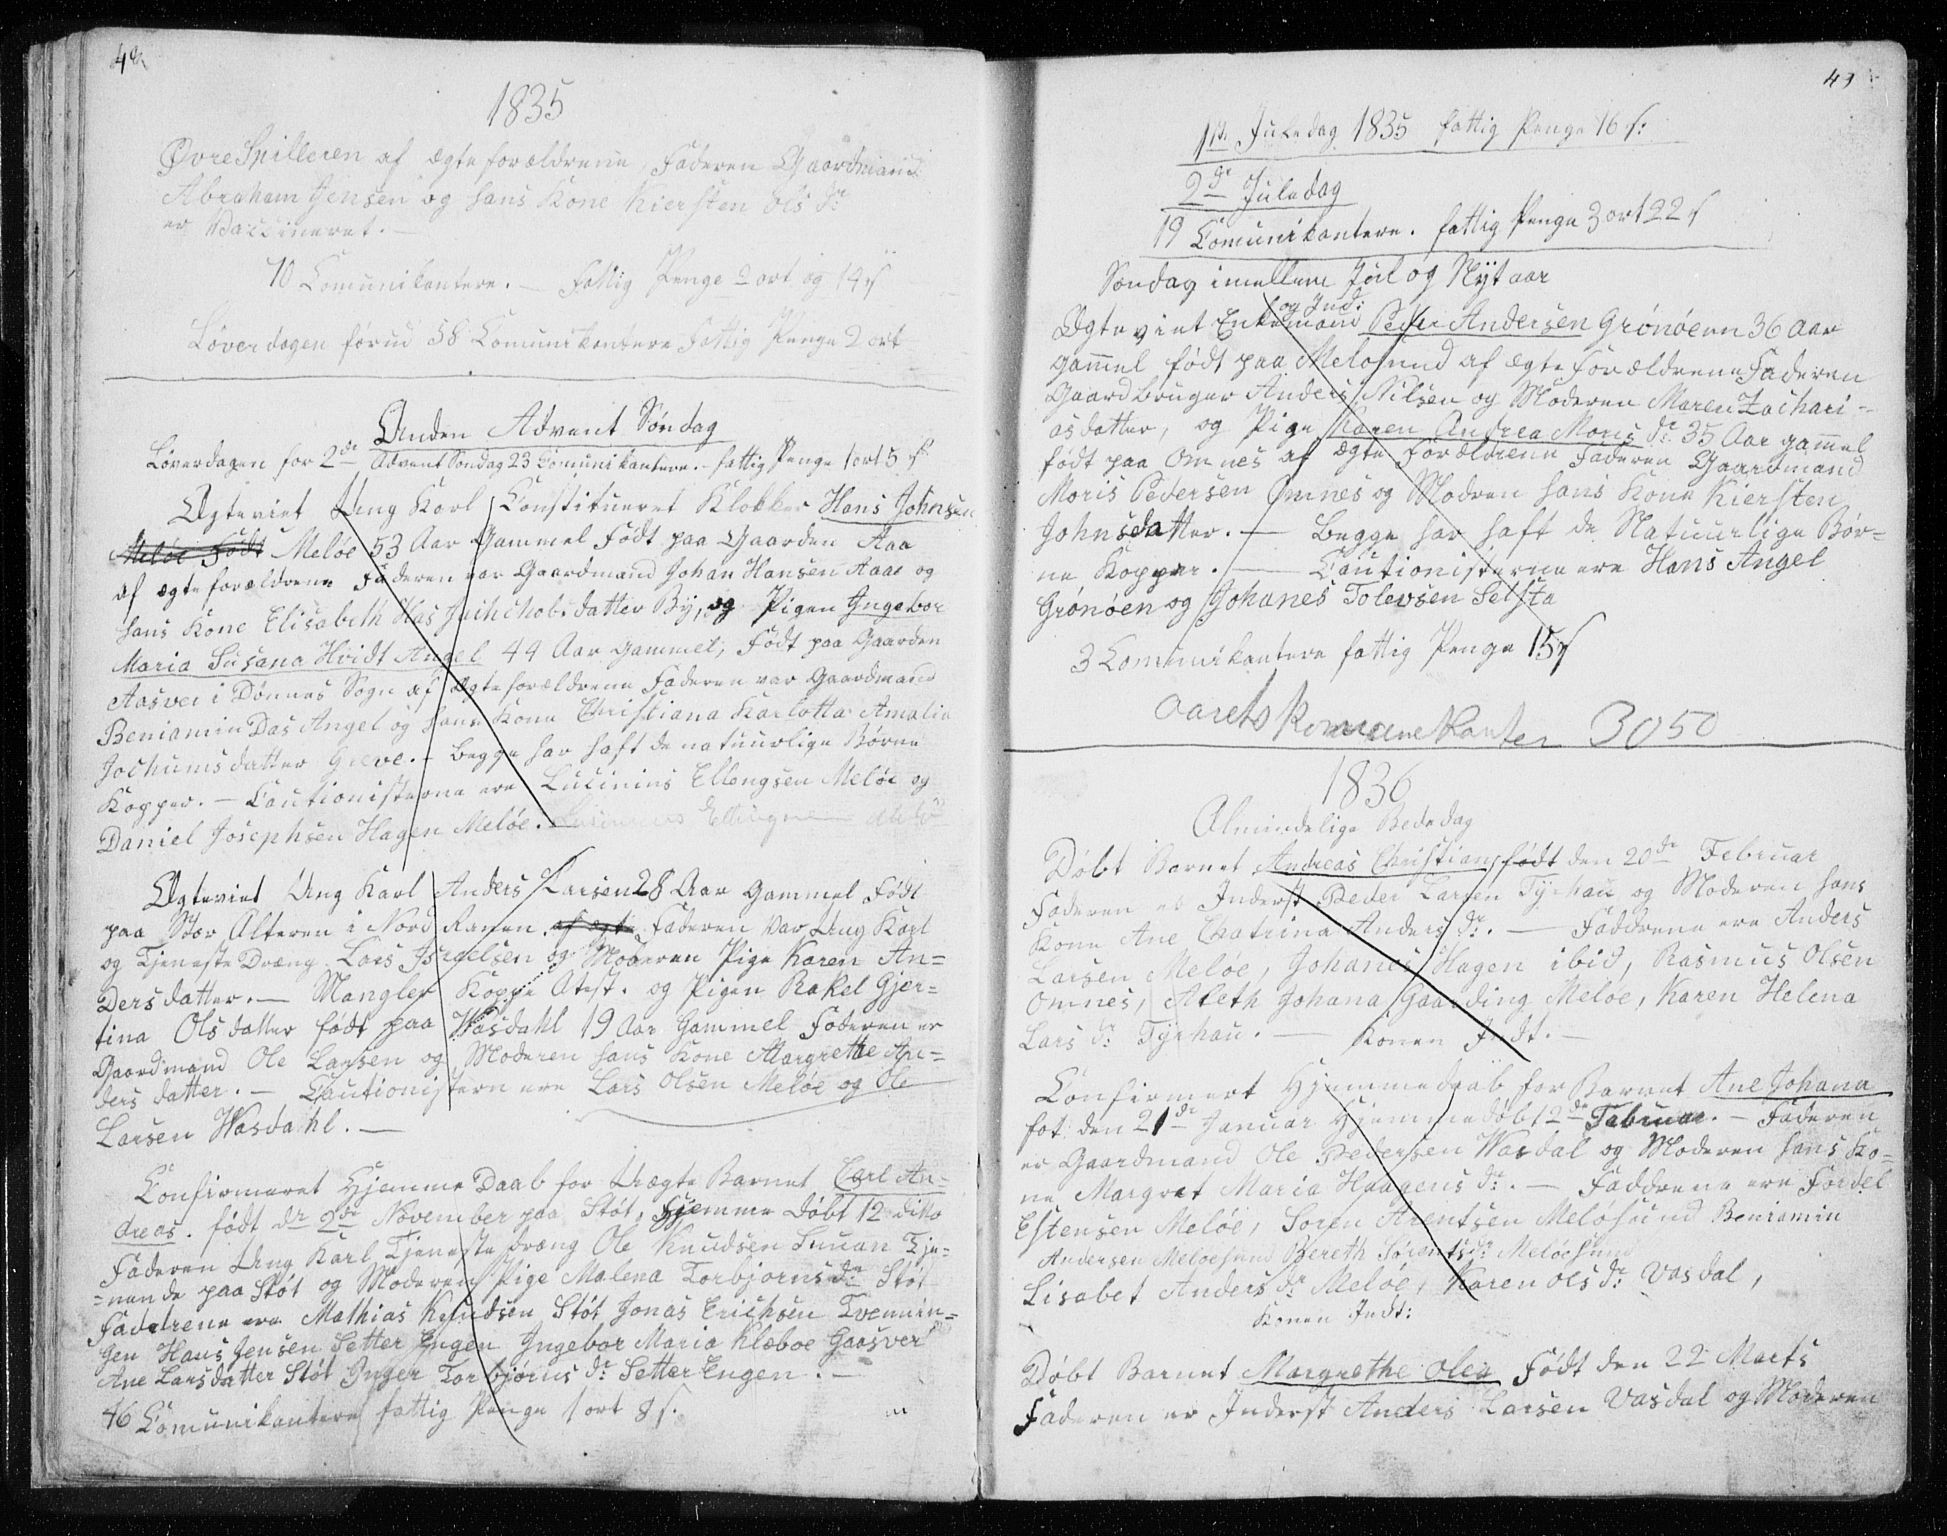 48
1835
Øvre Spilleren af ægte forældrene, Faderen Gaardmand
Abraham Jensen og hans Kone Kiersten Ols dr
er Vaccineret. —
70 Comunikantere. — Fattig Penge 2 ort og 14 s
Løverdagen forud 58 Comunikantere Fattig Penge 2 ort
Anden Advent Søndag
Løverdagen for 2de Advent Søndag 23 Comunikantere. - fattig Penge 1 ort 5 s
Ægteviet Ung Karl Constitueret Klokker Hans Johnsen
Meløe Født Meløe 53 Aar Gammel Født paa Gaarden Aaa
af ægte forældrene Faderen var Gaardmand Johan Hansen Aaae og
hans Kone Elisabeth Has datter By, og Pigen Ingebor
Maria Susana Hvidt Angel 44 Aar Gammel, Født paa Gaarden
Aasver i Dønnes Sogn af Ægte forældrene Faderen var Gaardmand
Beniamin Das Angel og hans Kone Christiana Karlotta Amalia
Jochumsdatter Greve. - begge har haft de natuurlige Børne
Kopper. - Cautionisterne ere Lucinius Ellengsen Meløe og
Daniel Josephsen Hagen Meløe.
Ægteviet Ung Karl Anders Larsen 28 Aar Gammel Født
paa Stor Alteren i Nord Ranen. af ægte Faderen var Ung Karl
og Tjeneste Dræng Lars Israelsen og Moderen Pige Karen An=
Dersdatter. — Mangler Koppe Atest. og Pigen Rakel Gjer=
tina Olsdatter født paa Wasdahl 19 Aar Gammel Faderen er
Gaardmand Ole Larsen og Moderen hans Kone Margrethe An=
ders datter. — Cautionistern ere Lars Olsen Meløe og Ole
Larsen Wasdahl. —
Confirmeret Hjemme Daab for Uægte Barnet Carl An=
dreas. født dn 2de November paa Støt, Hjemme Døbt 12 dito
Faderen Ung Karl Tjeneste dræng Ole Knudsen Tje=
=nende paa Støt og Moderen Pige Malena Torbjorns dr Støt
Faddrene ere Mathias Knudsen Støt Jonas Erichsen Tvennin=
gen Hans Jensen Setter Engen Ingebor Maria Klæboe Gaasver
Ane Larsdatter Støt Inger Torbjørns dr Setter Engen. —
46 Comunikantere fattig Penge 1 ort 8 s.
49
1ste Juledag 1835 fattig Penge 16 s:
2de Juledag
19 Comunikantere. fattig Penge 3 ort 22 s
Søndag imellem Jul og Nytaar
og Ind:
Ægteviet Enkemand Peder Andersen Grønøen 36 Aar
gammel født paa Meløsund af ægte Forældrene Faderen
Gaardbruger Anders Nilsen og Moderen Maren Zachari=
asdatter, og Pige Karen Andrea Moris dr: 35 Aar gammel
født paa Omnes af Ægte Forældrene Faderen Gaardmand
Moris Pedersen Omnes og Modren hans Kone Kiersten
Johnsdatter. — Begge har haft de Natuurlige Bør=
ne Kopper. — Cautionisterne ere Hans Angel
Grønøen og Johanes Tolevsen Selsta
3 Comunikantere fattig Penge 15 s
Aarets Komunekanter 3050
1836
Almindelige Bededag
Døbt Barnet Andreas Christian født den 20de Februar
Faderen er Inderst Peder Larsen Tyrhau og Moderen hans
Kone Ane Chatrina Anders dr. — Faddrene ere Anders
Larsen Meløe, Johanes Hagen ibid, Rasmus Olsen
Omnes, Aleth Johana Gaarding Meløe, Karen Helena
Lars dr Tyrhau. — Konen Indt. —
Confirmert Hjemmedaab for Barnet Ane Johana
føt den 21de Januar Hjemmedøbt 2de Februar. — Faderen
er Gaardmand Ole Pedersen Wasdal og Moderen hans Ko=
ne Margret Maria Haagens dr. — Faddrene ere Fordel
Estensen Meløe, Soren Arentsen Meløsund Beniamin
Andersen Meløesund Bereth Sørents dr Meløesund
Lisabet Anders dr Meløe, Karen Ols dr: Vasdal,
Konen Indt:
Døbt Barnet Margrethe Olea Født den 22 Marts
Faderen er Inderst Anders Larsen Vasdal og Moderen